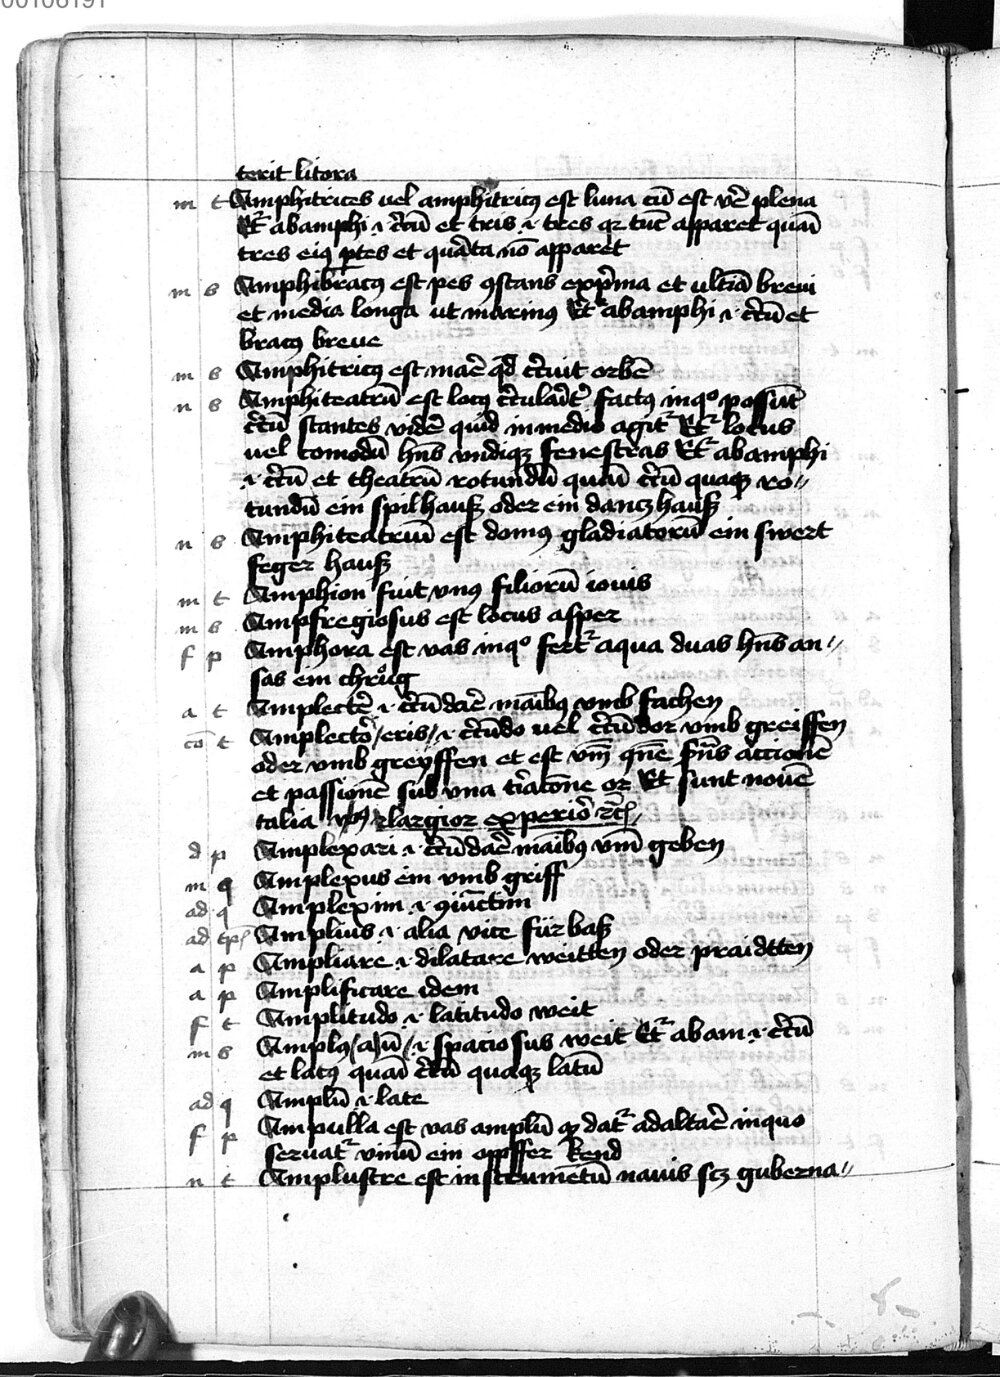 00106191
terit litora
m t Amphitrices uel amphitricꝯ est luna cū est vē plena
et abamphi .i. circū et tris .i. tres qr tūc apparet quāi
tres eiꝯ ptes et quarta nō apparet
m s Amphibracꝯ est pes ꝯstans ex pma et ultiā breui
et media longa ut maximꝯ abamphi .i. circū et
bracꝯ breue
m s Amphitricꝯ est mare qd circuit orbē
n s Amphiteatrū est locꝯ factꝯ in qo possūt
circū stantes vidē quid in medio agit locus
uel comodū hns vndiqꝫ fenestras abamphi
.i. circū et theatrū rotundū quāi circū quaqꝫ ro//
tundū ein spilhauß oder ein dancz hauß
n s Amphiteatrum est domꝯ gladiatorū ein swert
feger hauß
m t Amphion fuit vnꝯ filiorū iouis
m s Ampfregiosus est locus asper
f p Amphora est vas in qo fert aqua duas hns an//
sas ein chrůg
a t Amplectē .i. circūdare maibꝯ vmb fachen
cō t Amplector /eris/ .i. circūdo uel circūdor vmb greiffen
oder vmb greyffen et est vm accionē
et passionē sub una or Et sunt nouē
talia largior experior
d p Amplexari .i. circūdare maibꝯ vm geben
m q Amplexus ein vmb griff
ad q Amplexim .i. ꝯiūctim
ad Amplius .i. alia vice für baß
a p Ampliare .i. dilatare weitten oder praidtten
a p Amplificare idem
f t Amplitudo .i. latitudo weit
m s Amplꝯ /a/ū/ .i. spaciosus weit abam .i. circū
et latꝯ quāi circū quaqꝫ latū
ad q Amplū .i. late
f p Ampulla est vas amplū qꝫ dat ad altare in quo
seruat vinū ein opffer kend
n t Amplustre est instrumētū nauis scꝫ guberna//